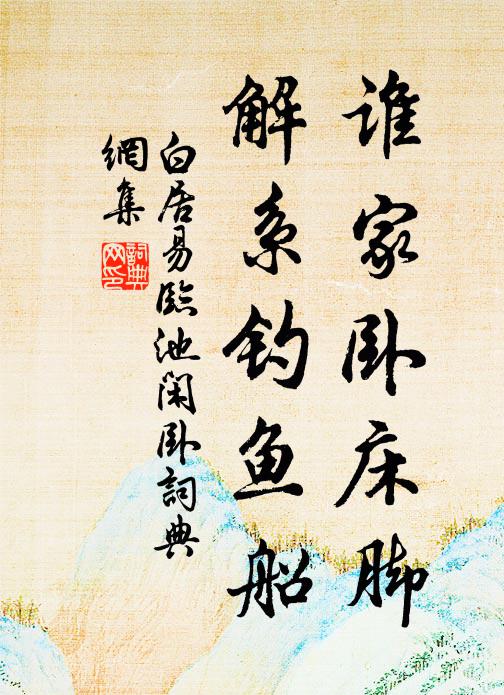 谁家卧床脚
解系钓鱼船
白居易臨池闲卧詞典
網集
詞典
网印